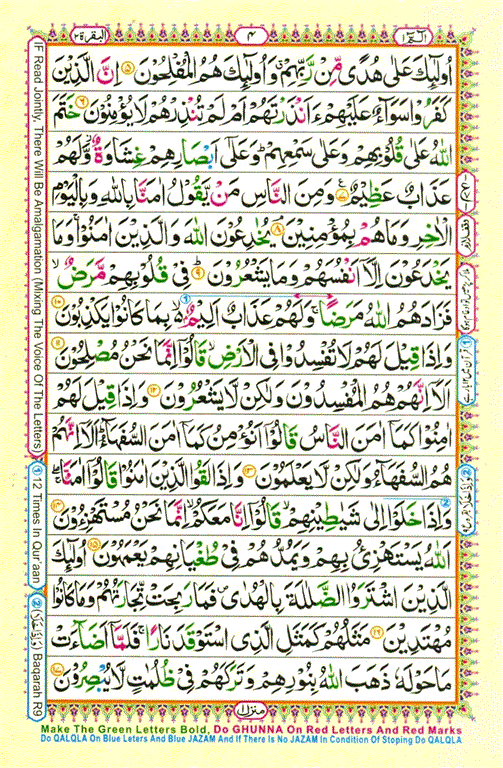 البقرة ٢
٤
الٓمّٓ ١
اُولٰٓئِكَ عَلٰى هُدًى مِّنْ رَّبِّهِمْ ۗ وَاُولٰٓئِكَ هُمُ الْمُفْلِحُوْنَ ۝٥ اِنَّ الَّذِيْنَ
كَفَرُوْا سَوَآءٌ عَلَيْهِمْ ءَاَنْذَرْتَهُمْ اَمْ لَمْ تُنْذِرْهُمْ لَا يُؤْمِنُوْنَ ۝٦ خَتَمَ
اللّٰهُ عَلٰى قُلُوْبِهِمْ وَعَلٰى سَمْعِهِمْ ؕ وَعَلٰٓى اَبْصَارِهِمْ غِشَاوَةٌ وَّلَهُمْ
عَذَابٌ عَظِيْمٌ ۝٧ وَمِنَ النَّاسِ مَنْ يَّقُوْلُ اٰمَنَّا بِاللّٰهِ وَبِالْيَوْمِ
الْاٰخِرِ وَمَا هُمْ بِمُؤْمِنِيْنَ ۝٨ يُخٰدِعُوْنَ اللّٰهَ وَالَّذِيْنَ اٰمَنُوْا ۚ وَمَا
يَخْدَعُوْنَ اِلَّآ اَنْفُسَهُمْ وَمَا يَشْعُرُوْنَ ۝٩ فِيْ قُلُوْبِهِمْ مَّرَضٌ ۙ
فَزَادَهُمُ اللّٰهُ مَرَضًا ۚ وَلَهُمْ عَذَابٌ اَلِيْمٌ ۢ ۙ بِمَا كَانُوْا يَكْذِبُوْنَ ۝١٠
وَاِذَا قِيْلَ لَهُمْ لَا تُفْسِدُوْا فِى الْاَرْضِ ۙ قَالُوْٓا اِنَّمَا نَحْنُ مُصْلِحُوْنَ ۝١١
اَلَآ اِنَّهُمْ هُمُ الْمُفْسِدُوْنَ وَلٰكِنْ لَّا يَشْعُرُوْنَ ۝١٢ وَاِذَا قِيْلَ لَهُمْ
اٰمِنُوْا كَمَآ اٰمَنَ النَّاسُ قَالُوْٓا اَنُؤْمِنُ كَمَآ اٰمَنَ السُّفَهَآءُ ؕ اَلَآ اِنَّهُمْ
هُمُ السُّفَهَآءُ وَلٰكِنْ لَّا يَعْلَمُوْنَ ۝١٣ وَاِذَا لَقُوا الَّذِيْنَ اٰمَنُوْا قَالُوْٓا اٰمَنَّا ۚ
وَاِذَا خَلَوْا اِلٰى شَيٰطِيْنِهِمْ ۙ قَالُوْٓا اِنَّا مَعَكُمْ ۙ اِنَّمَا نَحْنُ مُسْتَهْزِءُوْنَ ۝١٤
اَللّٰهُ يَسْتَهْزِئُ بِهِمْ وَيَمُدُّهُمْ فِيْ طُغْيَانِهِمْ يَعْمَهُوْنَ ۝١٥ اُولٰٓئِكَ
الَّذِيْنَ اشْتَرَوُا الضَّلٰلَةَ بِالْهُدٰى ۪ فَمَا رَبِحَتْ تِّجَارَتُهُمْ وَمَا كَانُوْا
مُهْتَدِيْنَ ۝١٦ مَثَلُهُمْ كَمَثَلِ الَّذِى اسْتَوْقَدَ نَارًا ۚ فَلَمَّآ اَضَآءَتْ
مَا حَوْلَهٗ ذَهَبَ اللّٰهُ بِنُوْرِهِمْ وَتَرَكَهُمْ فِيْ ظُلُمٰتٍ لَّا يُبْصِرُوْنَ ۝١٧
منزل ١
IF Read Jointly, There Will Be Amalgamation (Mixing The Voice Of The Letters) ① 12 Times In Qur'aan ② Baqarah R9
Make The Green Letters Bold, Do GHUNNA On Red Letters And Red Marks
Do QALQLA On Blue Leters And Blue JAZAM And If There Is No JAZAM In Condition Of Stoping Do QALQLA